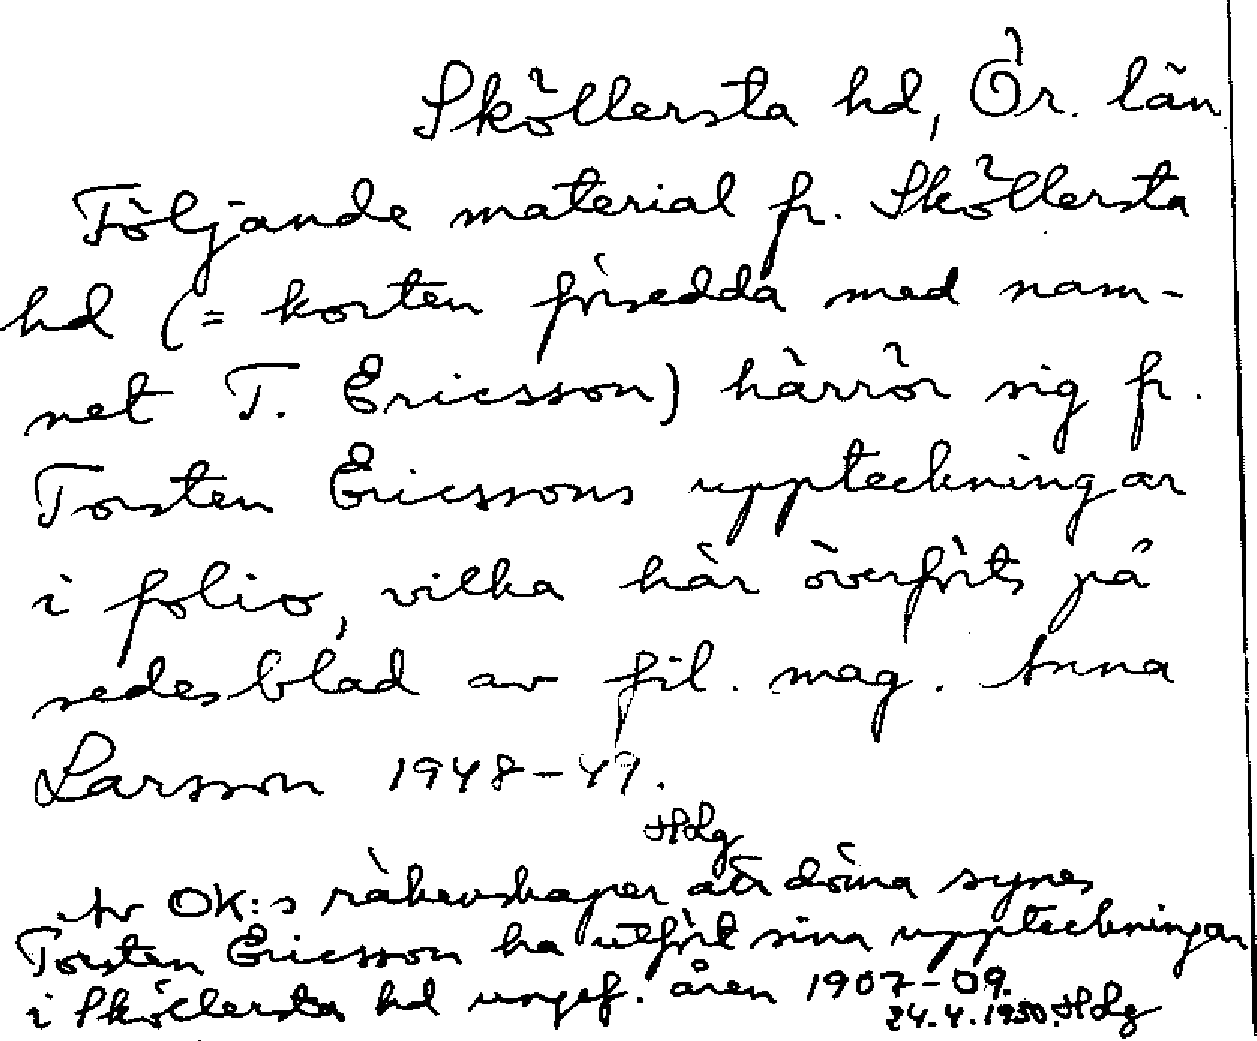 Sköllersta hd, Ör. län
Följande material fr. Sköllersta
hd (= korten försedda med nam-
net T. Ericsson) härrör sig fr.
Torsten Ericssons uppteckningar
i folio, vilka här överförts på
sedesblad av fil. mag. Anna
Larsson 1948-49.
HLg
Av OK:s räkenskaper att döma synes
Torsten Ericsson ha utfört sina uppteckningar
i Sköllersta hd ungef. åren 1907-09.
24.4.1950. HLg